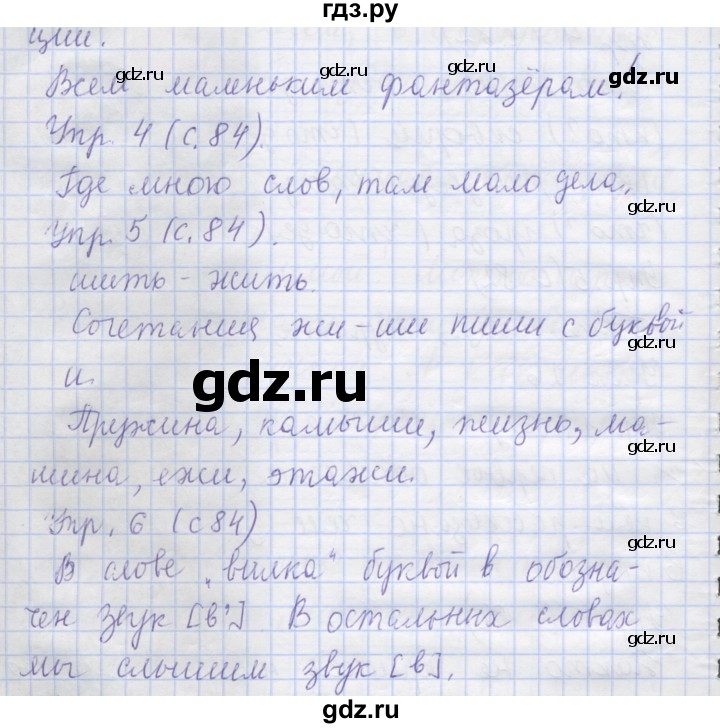 гдз.ру
ции.
Всем маленьким фантазёрам!
gdz.ru gdz.ru gdz.ru
Упр. 4 (с. 84).
gdz.ru
Где много слов, там мало дела.
gdz.ru
Упр. 5 (с. 84).
gdz.ru
шить - жить.
Сочетания жи-ши пиши с буквой
gdz.ru
и.
gdz.ru
Пружина, камыши, жизнь, ма-
gdz.ru
шина, ежи, этажи.
Упр. 6 (с 84)
gdz.ru
В слове „вилка" буквой в обозна-
чен звук [в']. В остальных словах
gdz.ru gdz.ru gdz.ru
мы слышим звук [в].
gdz.ru